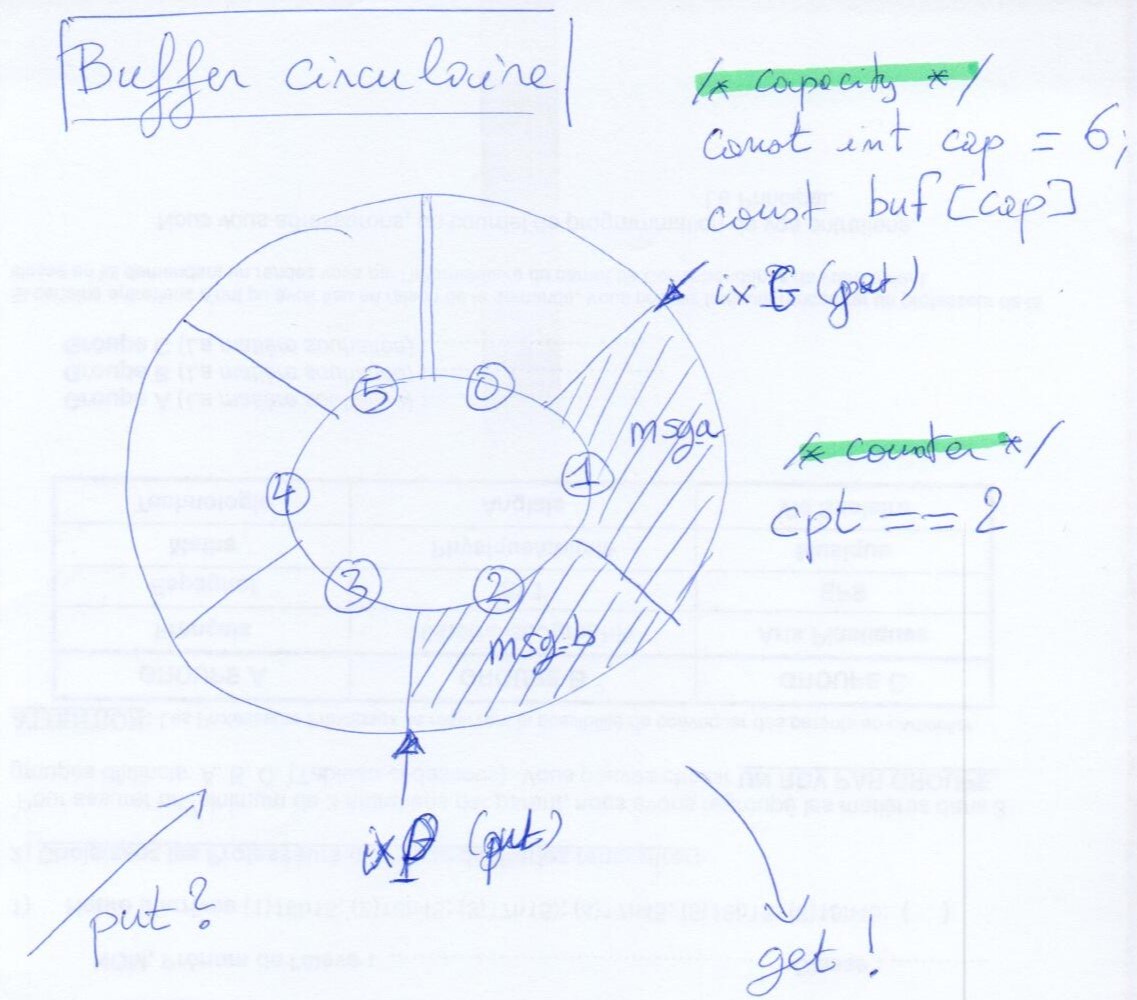 Buffer circulaire
/* capacity */
const int cap = 6;
const buf [cap]
5
0
msga
/* counter */
4
1
cpt == 2
3
2
msg-b
ixP (put)
put ?
get !